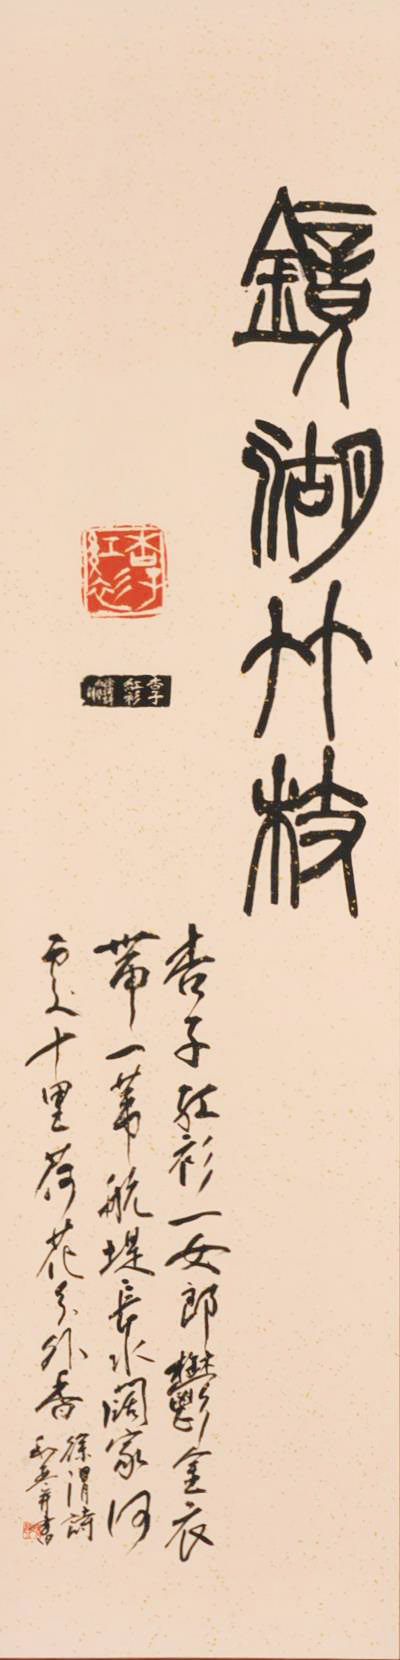 鏡湖竹枝
杏子
紅衫
杏子
紅衫
杏子紅衫一女郎鬱金衣
帶一葦航堤長水闊家何
處十里荷花分外香
徐渭詩
并書